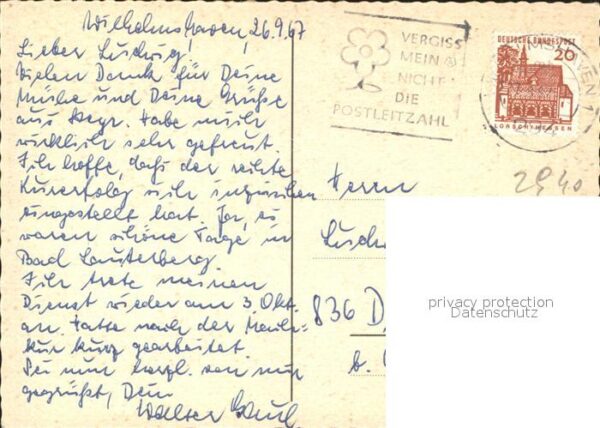 Wilhelmshaven, 26.9.67
Lieber Ludwig!
Vielen Dank für Deine
Mühe und Deine Grüße
aus Habe mich
wirklich sehr gefreut.
Ich hoffe, daß der rechte
Kurerfolg sich inzwischen
eingestellt hat. Ja, es
waren schöne Tage in
Bad Lauterberg.
Ich trete meinen
Dienst wieder am 3. Okt.
an. Hatte nach der
kur kurz gearbeitet.
Sei nun herzl. von mir
gegrüßt, Dein
Walter
VERGISS
MEIN
NICHT
DIE
POSTLEITZAHL
DEUTSCHE BUNDESPOST
20
LORSCH/HESSEN
Herrn
836 D
b.
privacy protection
Datenschutz